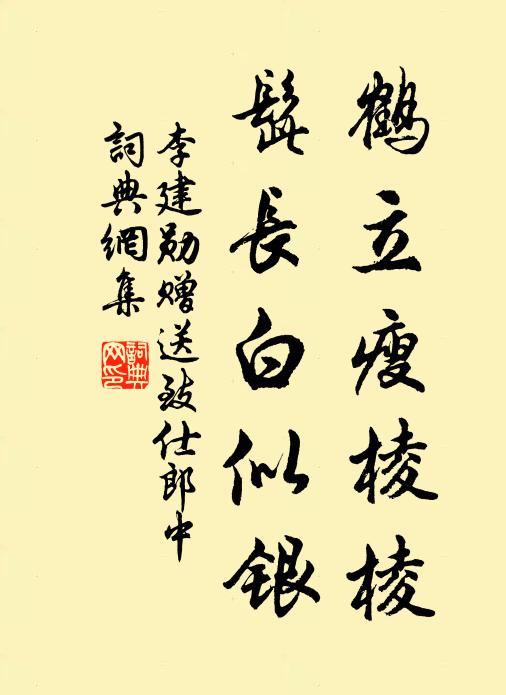 鶴立瘦棱棱
髭長白似銀
李建勛贈送致仕郎中
詞典網集
詞典
网印